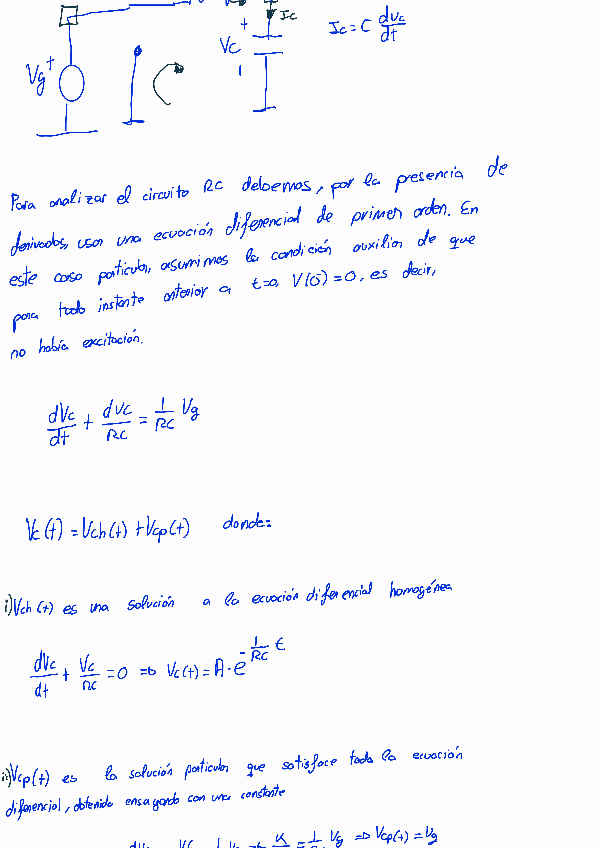 Ic
Ic = C dvc/dt
+
Vc
Vg +
Para analizar el circuito RC debemos, por la presencia de
derivadas, usar una ecuación diferencial de primer orden. En
este caso particular, asumimos la condición auxiliar de que
para todo instante anterior a t=0, V(0⁻)=0, es decir,
no había excitación.
dVc/dt + dvc/RC = 1/RC Vg
Vc(t) = Vch(t) + Vcp(t) donde:
i) Vch(t) es una solución a la ecuación diferencial homogénea
dVc/dt + Vc/RC = 0 ⇒ Vc(t) = A·e^(-1/RC t)
ii) Vcp(t) es la solución particular que satisface toda la ecuación
diferencial, obtenida ensayando con una constante
K/ = 1/ Vg ⇒ Vcp(t) = Vg